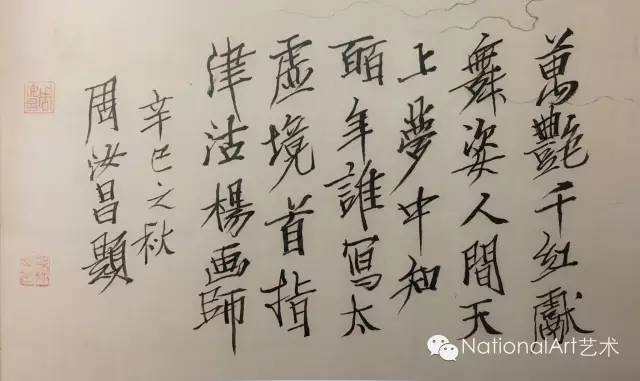 萬艷千紅獻
舞姿人間天
上夢中知
百年誰寫太
虛境首指
津沽楊画師
辛巳之秋
周汝昌題
NationalArt艺术